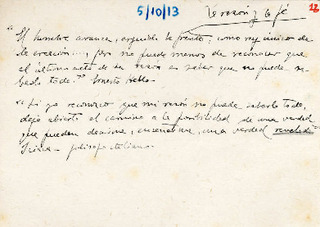 5/10/13 La razón y la fé 12
"El hombre avanza, erguida la frente, como rey único de
la creación..., pero no puede menos de reconocer que
el último acto de su razón es saber que no puede sa-
berlo todo". Ernesto Hello.
"Si yo reconozco que mi razón no puede saberlo todo,
dejo abierto el camino a la posibilidad de una verdad
que pueden decirme, enseñarme, una verdad revelada"
filósofo italiano.